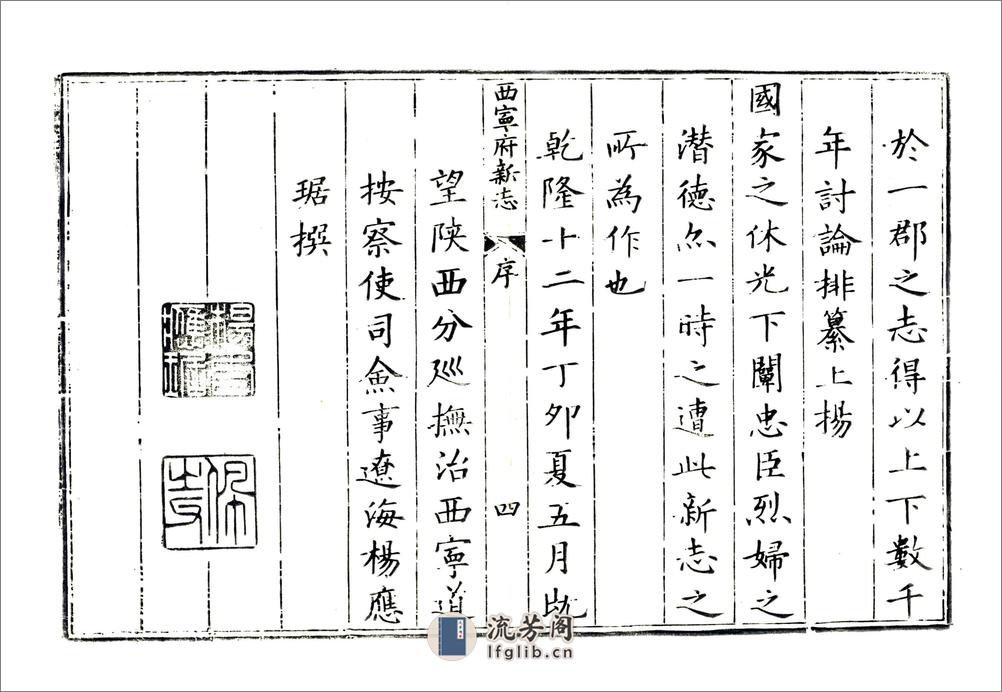 於一郡之志得以上下數千
年討論排纂上揚
國家之休光下闡忠臣烈婦之
潛德亦一時之遭此新志之
所為作也
乾隆十二年丁卯夏五月既
西寧府新志
序
四
望陝西分巡撫治西寧道
按察使司僉事遼海楊應
琚撰
流芳阁
lfglib.cn